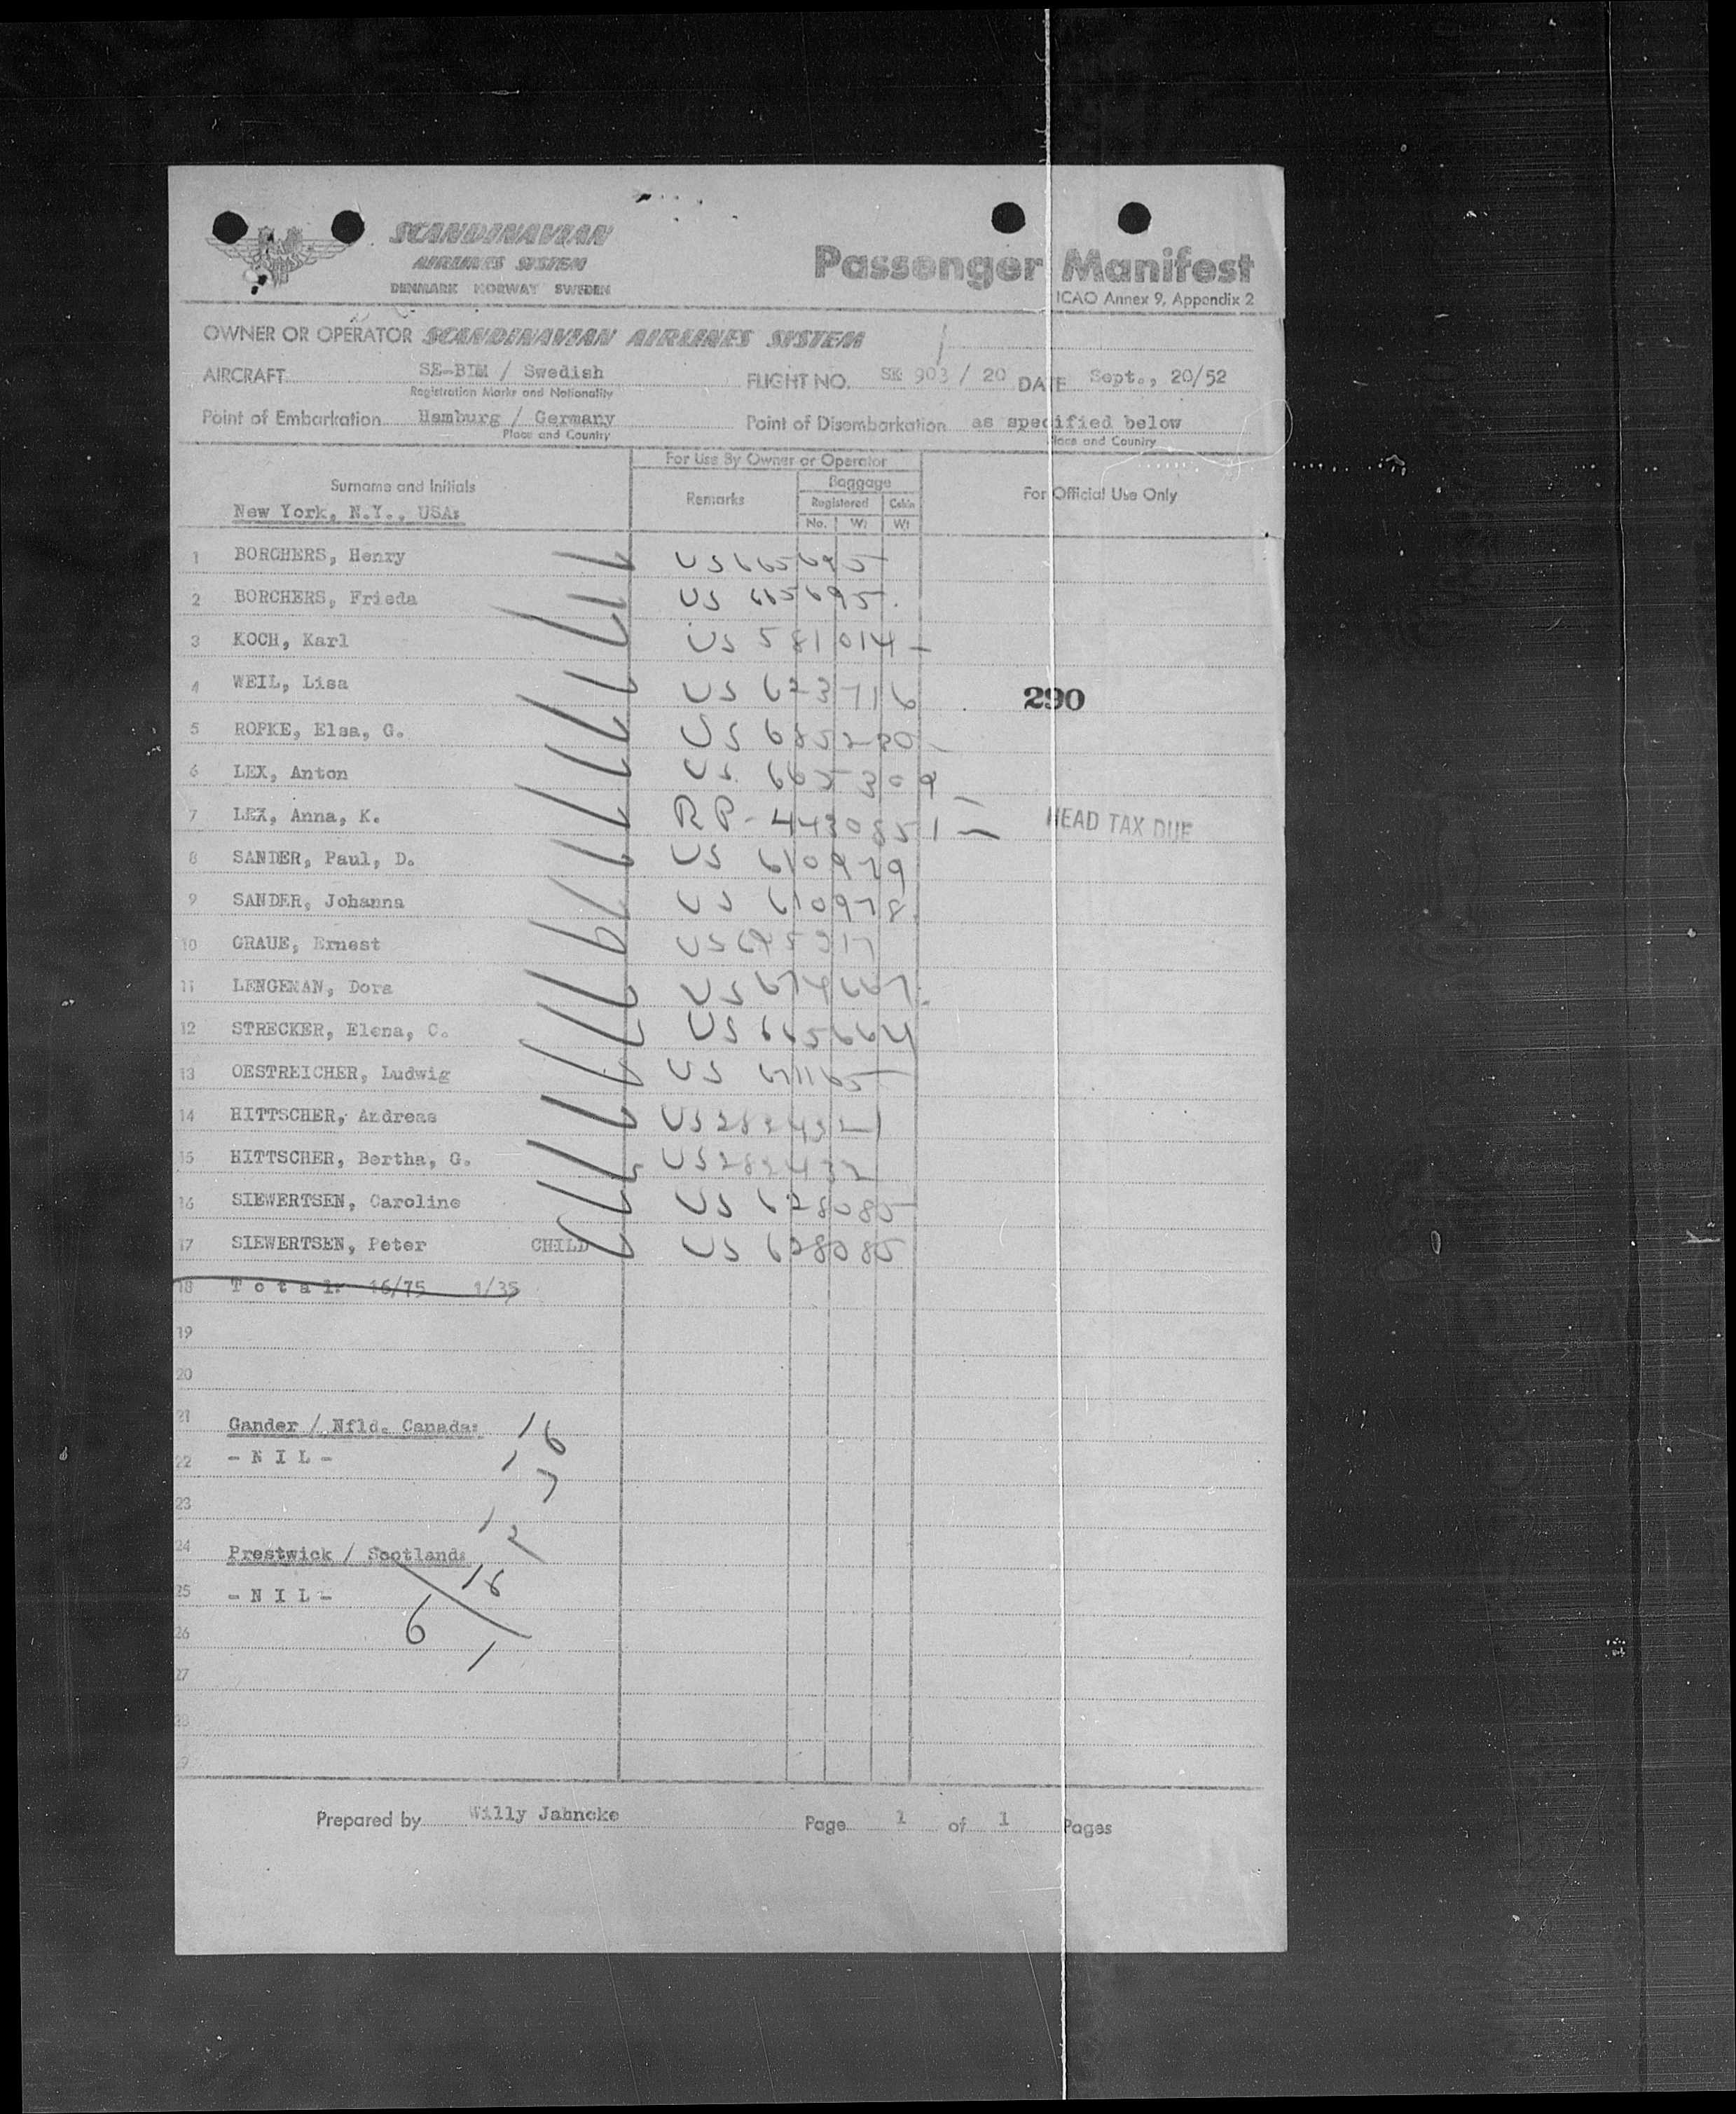 SCANDINAVIAN
AIRLINES SYSTEM
DENMARK NORWAY SWEDEN
Passenger Manifest
ICAO Annex 9, Appendix 2
OWNER OR OPERATOR SCANDINAVIAN AIRLINES SYSTEM
AIRCRAFT SE-BIM / Swedish FLIGHT NO. SK 903 / 20 DATE Sept., 20/52
Registration Marks and Nationality
Point of Embarkation Hamburg / Germany Point of Disembarkation as specified below
Place and Country Place and Country
For Use By Owner or Operator
Surname and Initials Remarks Baggage For Official Use Only
Registered Cabin
New York, N.Y., USA: No. Wt Wt
1 BORCHERS, Henry US 665695
2 BORCHERS, Frieda US 665695
3 KOCH, Karl US 581014 -
4 WEIL, Lisa US 623716
290
5 ROPKE, Elsa, G. US
6 LEX, Anton US 665309
7 LEX, Anna, K. RP-4430851 - HEAD TAX DUE
8 SANDER, Paul, D. US 610979
9 SANDER, Johanna US 610978
10 GRAUE, Ernest US
11 LENGEMAN, Dora US 674667
12 STRECKER, Elena, C. US 665664
13 OESTREICHER, Ludwig US 671165
14 HITTSCHER, Andreas US
15 HITTSCHER, Bertha, G. US 282432
16 SIEWERTSEN, Caroline US 628085
17 SIEWERTSEN, Peter CHILD US 628085
18 T o t a l: 16/75 1/35
19
20
21 Gander / Nfld. Canada: 16
22 - N I L - 1
7
23
12
24 Prestwick / Scotland:
16
25 - N I L -
26 6
1
27
28
9
Prepared by Willy Jahncke Page 1 of 1 Pages